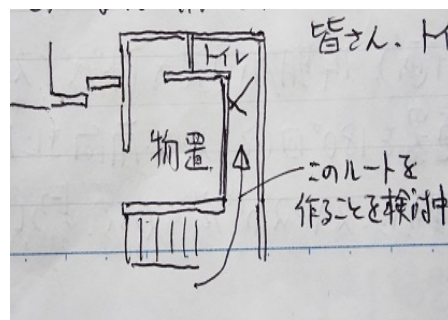 皆さん、トイ
トイレ
物置
このルートを
作ることを検討中